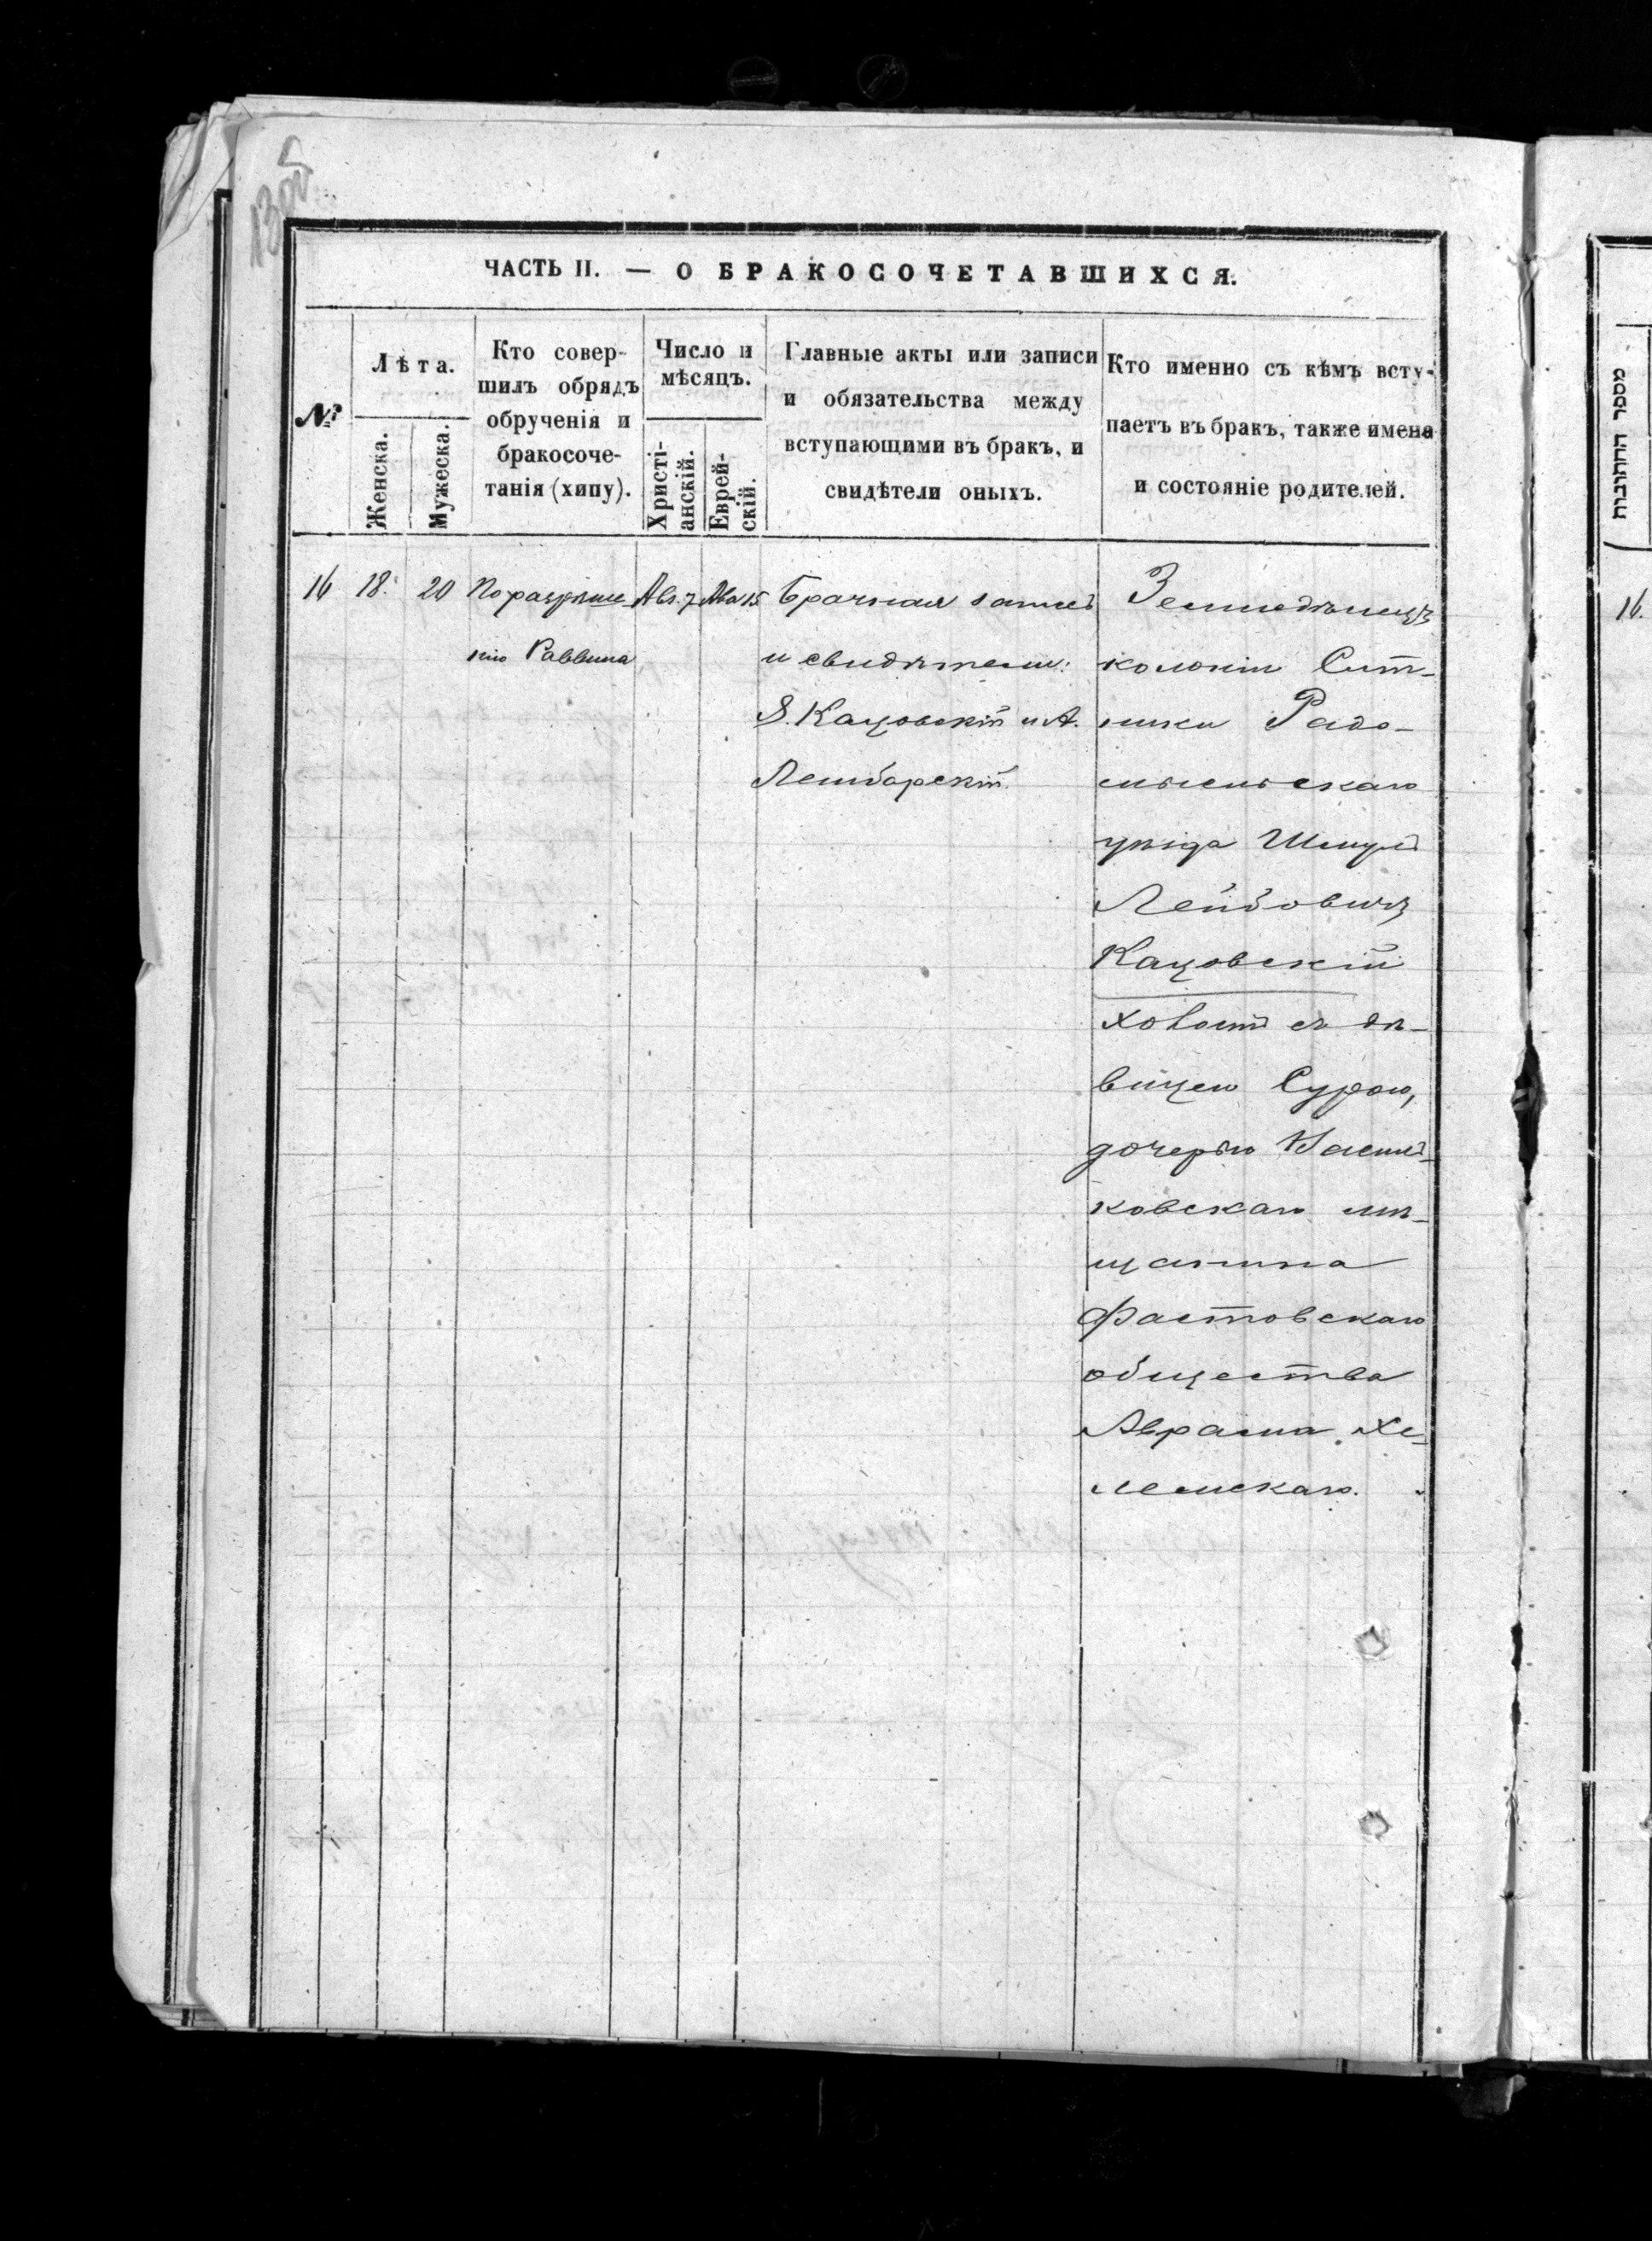 ЧАСТЬ II. — О БРАКОСОЧЕТАВШИХСЯ.
№
Лѣта.
Женска.
Мужеска.
Кто совер-
шилъ обрядъ
обрученія и
бракосоче-
танія (хипу).
Число и
мѣсяцъ.
Христі-
анскій.
Еврей-
скій.
Главные акты или записи
и обязательства между
вступающими въ бракъ, и
свидѣтели оныхъ.
Кто именно съ кѣмъ всту-
паетъ въ бракъ, также имена
и состояніе родителей.
16 18. 20 По разрѣше
нію Раввина
Авг. 7 Ава 15
Брачная запись
и свидѣтели:
Я. Кацовскій и А.
Лембарскій.
Земледѣлецъ
колоніи Сит-
ники Радо-
мысльскаго
уѣзда Шмуль
Лейбовичъ
Кацовскій
холост съ дѣ-
вицею Сурою,
дочерью Василь-
ковскаго мѣ-
щанина
Фастовскаго
общества
Аврама Хе-
лемскаго.
מספר החתונות
16.